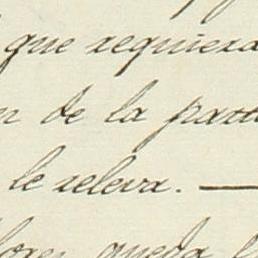 que requiera
n de la parte
le releva. —
queda